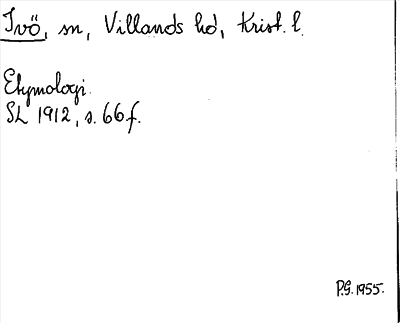 Ivö, sn, Villands hd, Krist. l.
Etymologi.
SL 1912, s. 66 f.
P.G. 1955.